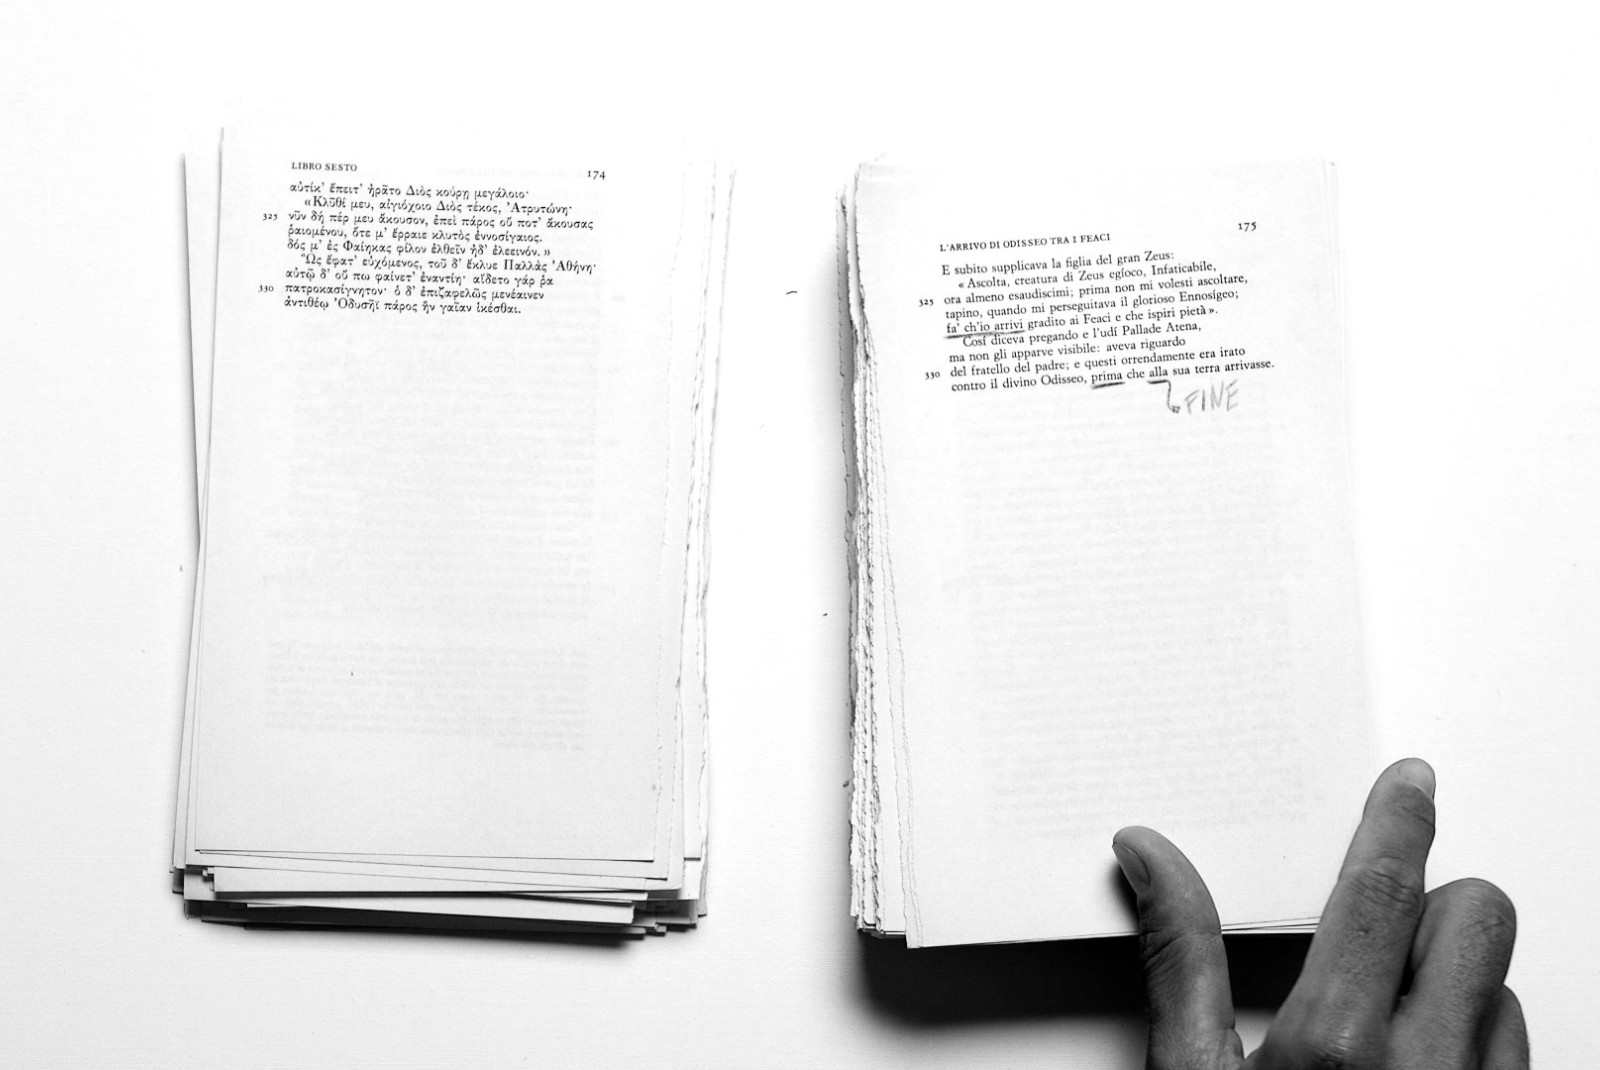 LIBRO SESTO 174
αὐτίκ' ἔπειτ' ἠρᾶτο Διὸς κούρῃ μεγάλοιο·
«Κλῦθί μευ, αἰγιόχοιο Διὸς τέκος, Ἀτρυτώνη·
325 νῦν δή πέρ μευ ἄκουσον, ἐπεὶ πάρος οὔ ποτ' ἄκουσας
ῥαιομένου, ὅτε μ' ἔρραιε κλυτὸς ἐννοσίγαιος.
δός μ' ἐς Φαίηκας φίλον ἐλθεῖν ἠδ' ἐλεεινόν.»
Ὣς ἔφατ' εὐχόμενος, τοῦ δ' ἔκλυε Παλλὰς Ἀθήνη·
αὐτῷ δ' οὔ πω φαίνετ' ἐναντίη· αἴδετο γάρ ῥα
330 πατροκασίγνητον· ὁ δ' ἐπιζαφελῶς μενέαινεν
ἀντιθέῳ Ὀδυσῆϊ πάρος ἣν γαῖαν ἱκέσθαι.
L'ARRIVO DI ODISSEO TRA I FEACI 175
E subito supplicava la figlia del gran Zeus:
« Ascolta, creatura di Zeus egíoco, Infaticabile,
325 ora almeno esaudiscimi; prima non mi volesti ascoltare,
tapino, quando mi perseguitava il glorioso Ennosígeo;
fa' ch'io arrivi gradito ai Feaci e che ispiri pietà ».
Cosí diceva pregando e l'udí Pallade Atena,
ma non gli apparve visibile: aveva riguardo
330 del fratello del padre; e questi orrendamente era irato
contro il divino Odisseo, prima che alla sua terra arrivasse.
FINE